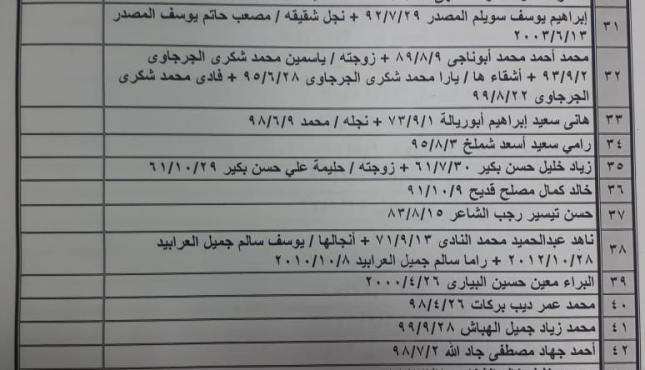 ٣١ إبراهيم يوسف سويلم المصدر ٩٢/٧/٢٩ + نجل شقيقه / مصعب حاتم يوسف المصدر
٢٠٠٣/٦/١٣
محمد أحمد محمد أبوناجى ٨٩/٨/٩ + زوجته / ياسمين محمد شكرى الجرجاوى
٣٢ ٩٣/٩/٢ + أشقاء ها / يارا محمد شكرى الجرجاوى ٩٥/٦/٢٨ + فادى محمد شكرى
الجرجاوى ٩٩/٨/٢٢
٣٣ هانى سعيد إبراهيم أبوريالة ٧٣/٩/١ + نجله / محمد ٩٨/٦/٩
٣٤ رامي سعيد أسعد شملخ ٩٥/٨/٣
٣٥ زياد خليل حسن بكير ٦١/٧/٣٠ + زوجته / حليمة علي حسن بكير ٦١/١٠/٢٩
٣٦ خالد كمال مصلح قديح ٩١/١٠/٩
٣٧ حسن تيسير رجب الشاعر ٨٣/٨/١٥
٣٨ ناهد عبدالحميد محمد النادى ٧١/٩/١٣ + أنجالها / يوسف سالم جميل العرابيد
٢٠١٢/١٠/٢٨ + راما سالم جميل العرابيد ٢٠١٠/١٠/٨
٣٩ البراء معين حسين البيارى ٢٠٠٠/٤/٢٦
٤٠ محمد عمر ديب بركات ٩٨/٤/٢٦
٤١ محمد زياد جميل الهباش ٩٩/٩/٢٨
٤٢ أحمد جهاد مصطفي جاد الله ٩٨/٧/٢